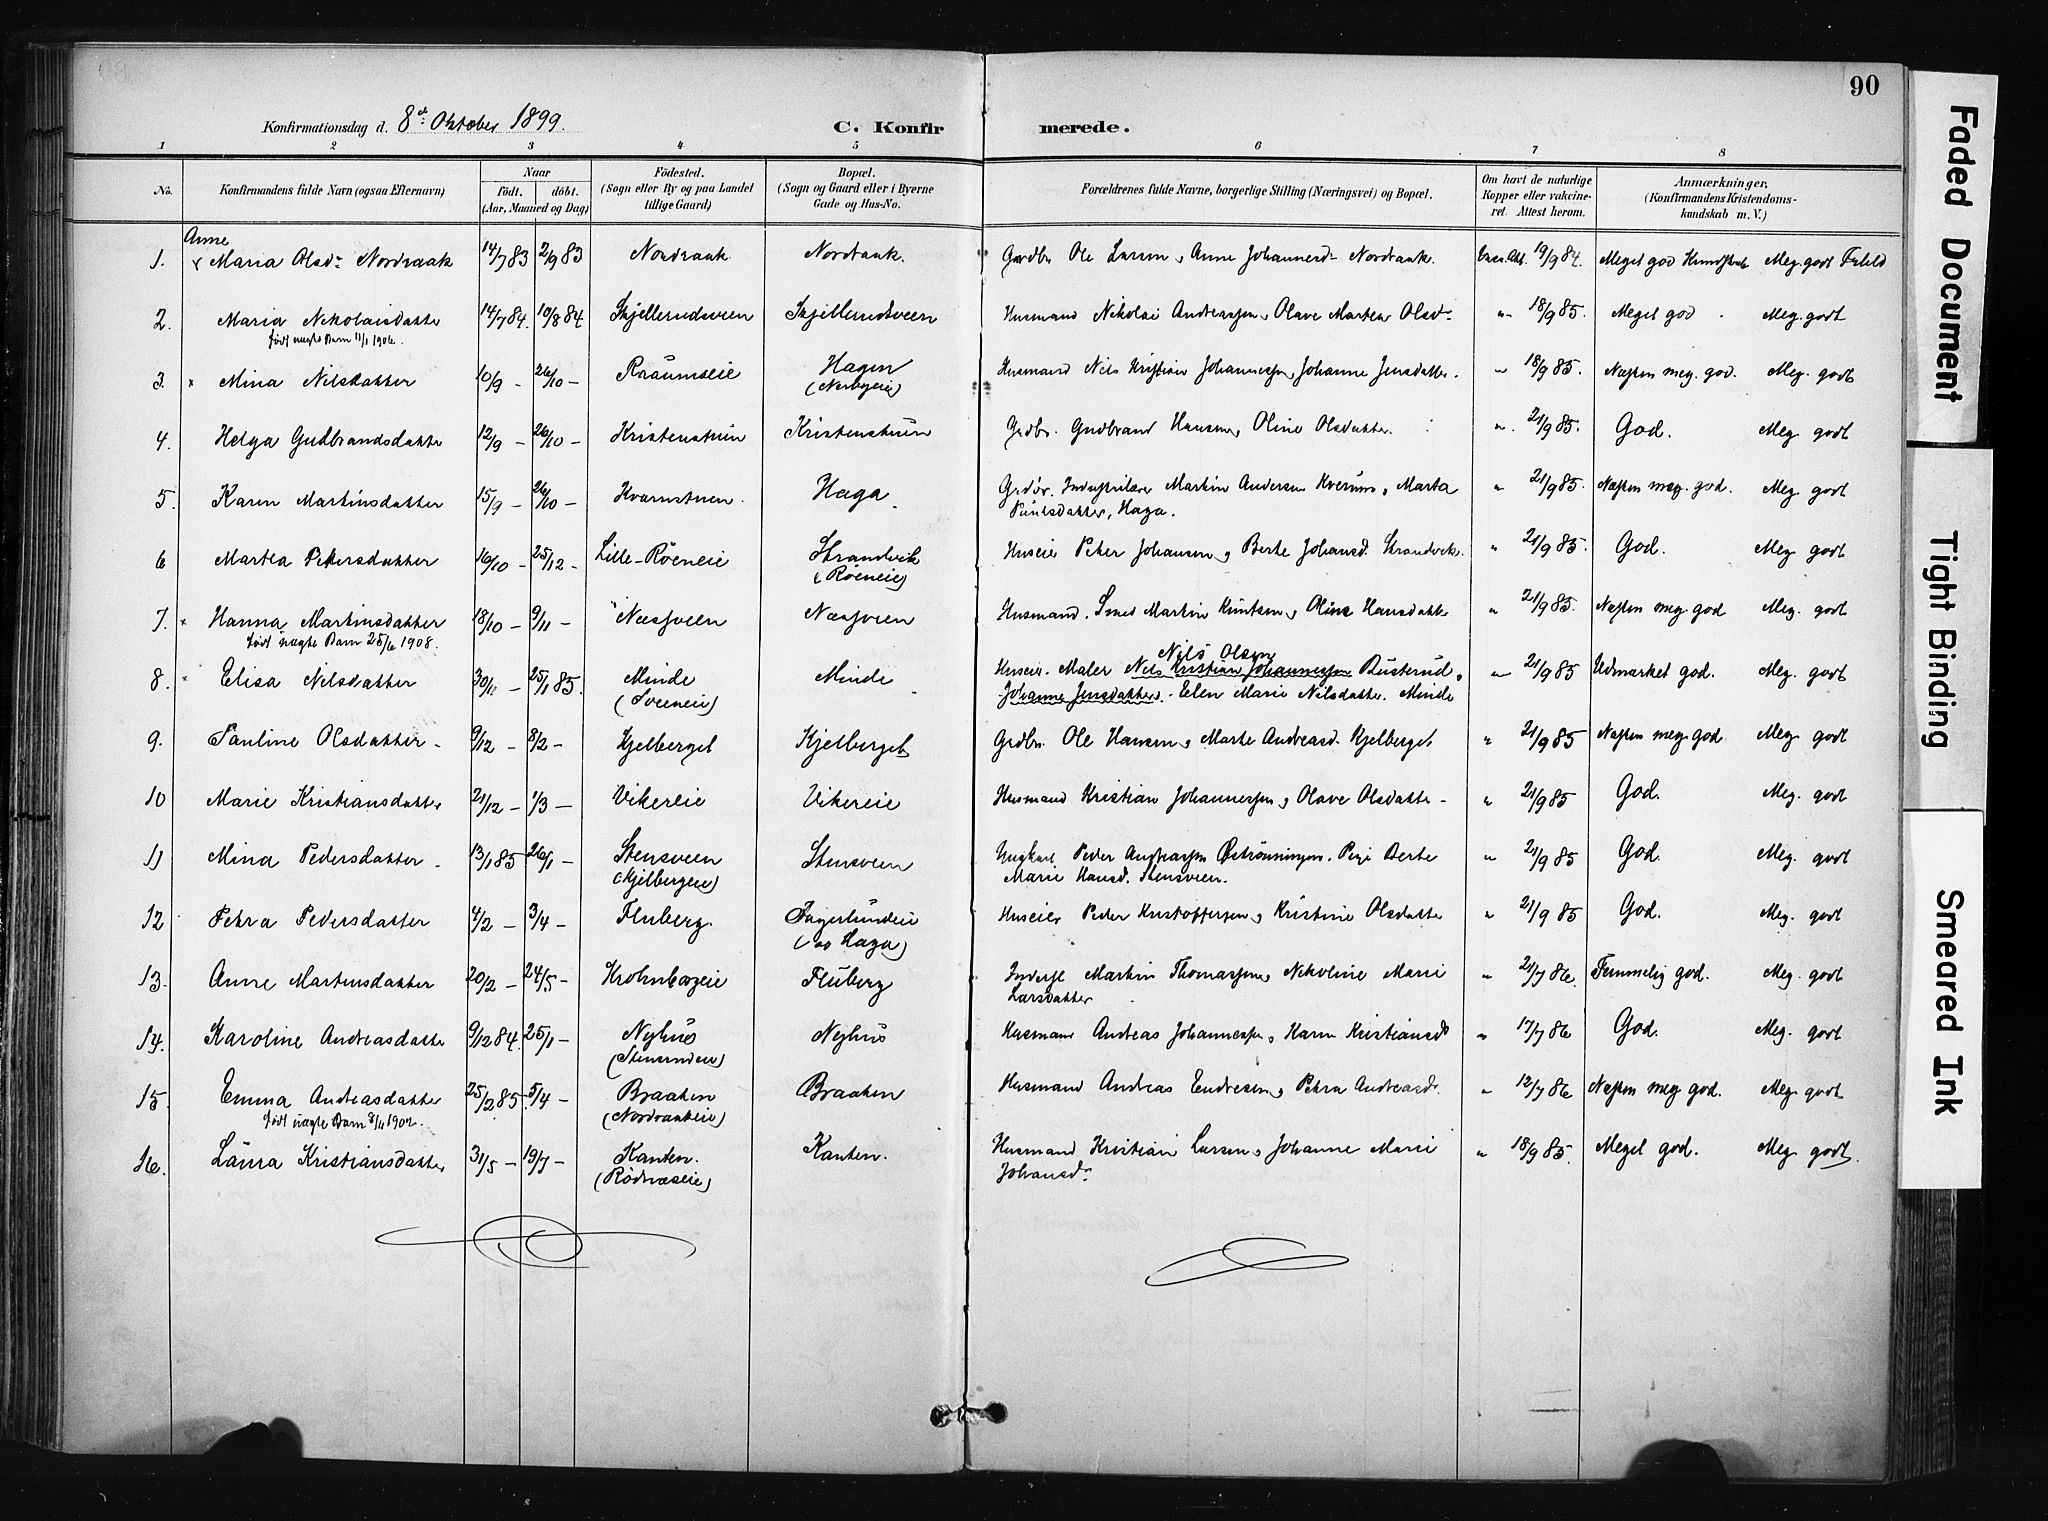 90
Konfirmationsdag d. 8de Oktober 1899. C. Konfirmerede.
1 2 3 4 5 6 7 8
No. Konfirmandens fulde Navn (ogsaa Efternavn) Naar født. døbt. (Aar, Maaned og Dag) Fødested. (Sogn eller By og paa Landet tillige Gaard) Bopæl. (Sogn og Gaard eller i Byerne Gade og Hus-No. Forældrenes fulde Navne, borgerlige Stilling (Næringsvei) og Bopæl. Om havt de naturlige Kopper eller vakcineret. Attest herom. Anmærkninger, (Konfirmandens Kristendomskundskab m. V.)
Anne
1. Maria Olsd. Nordraak 14/7 83 2/9 83 Nordraak Nordraak. Grdbr. Ole Larsen, Anne Johannesd. Nordraak. 19/9 84. Meget god Kundskab Meg. godt Forhold
2. Maria Nikolaisdatter 14/7 84. 10/8 84 Skjellerudsveen Skjellerudsveen Husmand Nikolai Andreassen, Olave Martea Olsd. " 18/9 85. Meget god Meg. godt
født uægte Barn 11/1 1906.
3. Mina Nilsdatter 10/9 - 26/10 - Raaumseie Hagen Husmand Nils Kristian Johannessen, Johanne Jensdatter. " 18/9 85. Næsten meg. god. Meg. godt
4. Helga Gudbrandsdatter 12/9 - 26/10 - Kristenstuen Kristenstuen Grdbr. Gudbrand Hansen, Oline Olsdatter. " 21/9 85. God. Meg godt
5. Karen Martinsdatter 15/9 - 26/10 - Kvernstuen. Haga. Martin Andersen, Marta " 21/9 85. Næsten meg. god. Meg. godt
Paulsdatter, Haga.
6 Martea Petersdatter 16/10 - 25/12 - Lille-Røeneie Strandvik Huseier Peter Johansen, Berte Johansd. Strandvik. " 21/9 85. God. Meg. godt
(Røeneie)
7. Hanna Martinsdatter 18/10 - 9/11 - Næsfveen Næsfveen Husmand. Smed Martin Knutsen, Oline Hansdatter " 21/9 85. Næsten meg god Meg. godt
født uægte Barn 25/6 1908.
Nils Olsen
8. Elisa Nilsdatter 30/11 - 25/1 85. Minde Minde Huseier. Maler Nils Kristian Johannessen Busterud, " 21/9 85 Udmærket god. Meg. godt
(Sveeneie) Johanne Jensdatter. Elen Marie Nilsdatter. Minde
9. Pauline Olsdatter - 9/12 - 8/2 - Kjelberget Kjelberget Grdbr. Ole Hansen, Marte Andreasd. Kjelberget. " 21/9 85 Næsten meg god. Meg. godt
10 Marie Kristiansdatter 21/12 - 1/3 - Vikereie Vikereie Husmand Kristian Johannessen, Olave Olsdatter - " 21/9 85 God. Meg. godt
11 Mina Pedersdatter - 13/1 85 26/1 - Stensveen Stensveen Ungkarl Peder Andreassen. Pige Berte " 21/9 85 God. Meg. godt
(Kjelbergeie) Marie Hansd. Stensveen.
12 Petra Pedersdatter 4/2 - 3/4 - Fluberg. Fagerlundeie Huseier Peder Kristoffersen, Kristine Olsdatter " 21/9 85 God. Meg. godt
(se Haga)
13. Anne Martinsdatter 20/2 - 24/5 - Krohnborgeie Fluberg Inderst Martin Thomassen, Nikoline Marie " 21/7 86. Temmelig god. Meg. godt
Larsdatter
14. Karoline Andreasdatter 9/12 84. 25/1 - Nyhus Nyhus Husmand Andreas Johannessen, Karen Kristiansd. " 17/7 86 God. Meg. godt
15. Emma Andreasdatter 25/2 85. 5/4 - Braaten Braaten Husmand Andreas Endresen, Petra Andreasd. " 12/7 86 Næsten meg god. Meg. godt
født uægte Barn 3/11 1902. (Nordraakeie)
16. Laura Kristiansdatter 31/5 - 19/7 - Kanten. Kanten. Husmand Kristian Larsen, Johanne Marie " 18/9 85. Meget god. Meg godt.
(Rødnæseie) Johansd.
Faded Document
Tight Binding
Smeared Ink